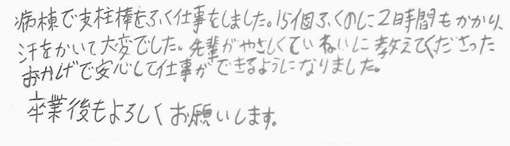 病棟で支柱棒をふく仕事をしました。15個ふくのに2時間もかかり、
汗をかいて大変でした。先輩がやさしくていねいに教えてくださった
おかげで安心して仕事ができるようになりました。
卒業後もよろしくお願いします。